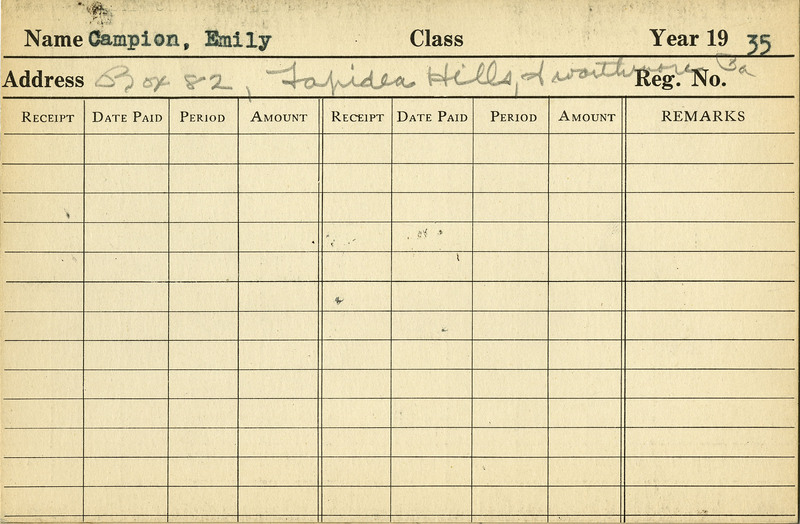 Name Campion, Emily Class Year 19 35
Address Box 82, Lapidea Hills, Swarthmore Pa Reg. No.
RECEIPT DATE PAID PERIOD AMOUNT RECEIPT DATE PAID PERIOD AMOUNT REMARKS